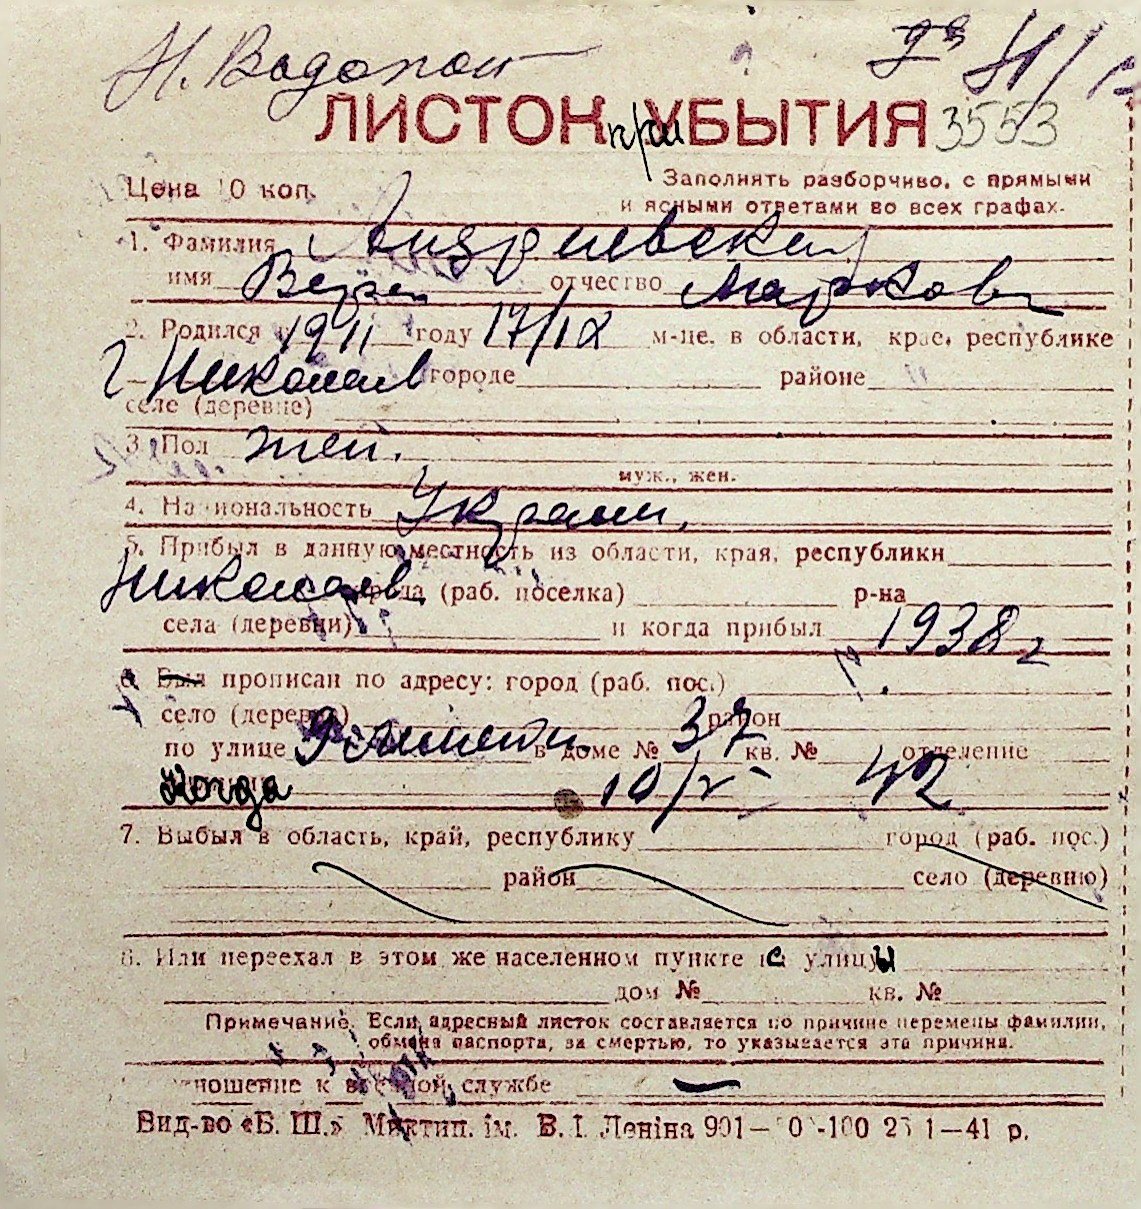 Н. Водопой
ЛИСТОК при УБЫТИЯ 3553
Цена 10 коп.
Заполнять разборчиво, с прямыми
и ясными ответами во всех графах.
1. Фамилия Андриевская
имя Вера отчество Марковн
2. Родился в 1911 году 17/12 м-це, в области, крае, республике
г Николаев городе районе
селе (деревне)
3. Пол жен.
муж., жен.
4. Национальность Украин.
5. Прибыл в данную местность из области, края, республики
Николаев города (раб. поселка) р-на
села (деревни) и когда прибыл 1938 г
6. Был прописан по адресу: город (раб. пос.)
село (деревня) район
по улице в доме № 37 кв. № отделение
Когда 10/V 42
7. Выбыл в область, край, республику город (раб. пос.)
район село (деревню)
8. Или переехал в этом же населенном пункте с улицы
дом № кв. №
Примечание. Если адресный листок составляется по причине перемены фамилии,
обмена паспорта, за смертью, то указывается эта причина.
отношение к военной службе —
Вид-во «Б. Ш.» Миктип. ім. В. І. Леніна 901— 41 р.